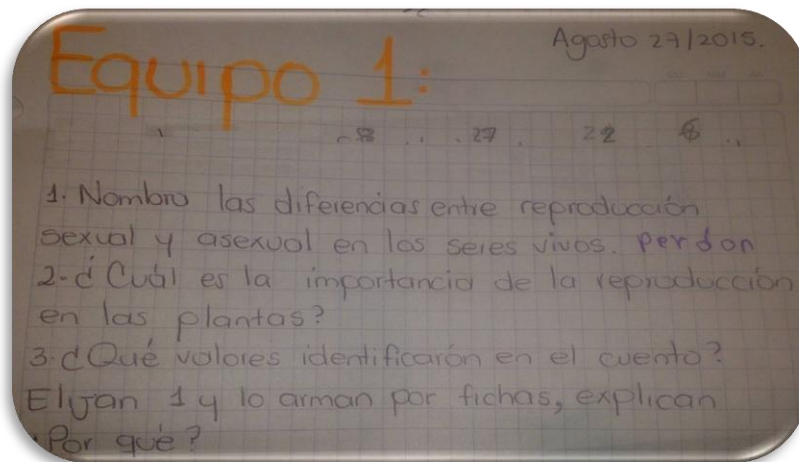 Agosto 27/2015.
Equipo 1:
8 27 22 6
1. Nombra las diferencias entre reproducción
sexual y asexual en los seres vivos. perdon
2-¿Cuál es la importancia de la reproducción
en las plantas?
3.¿Qué valores identificarón en el cuento?
Elijan 1 y lo arman por fichas, explican
¿Por qué?